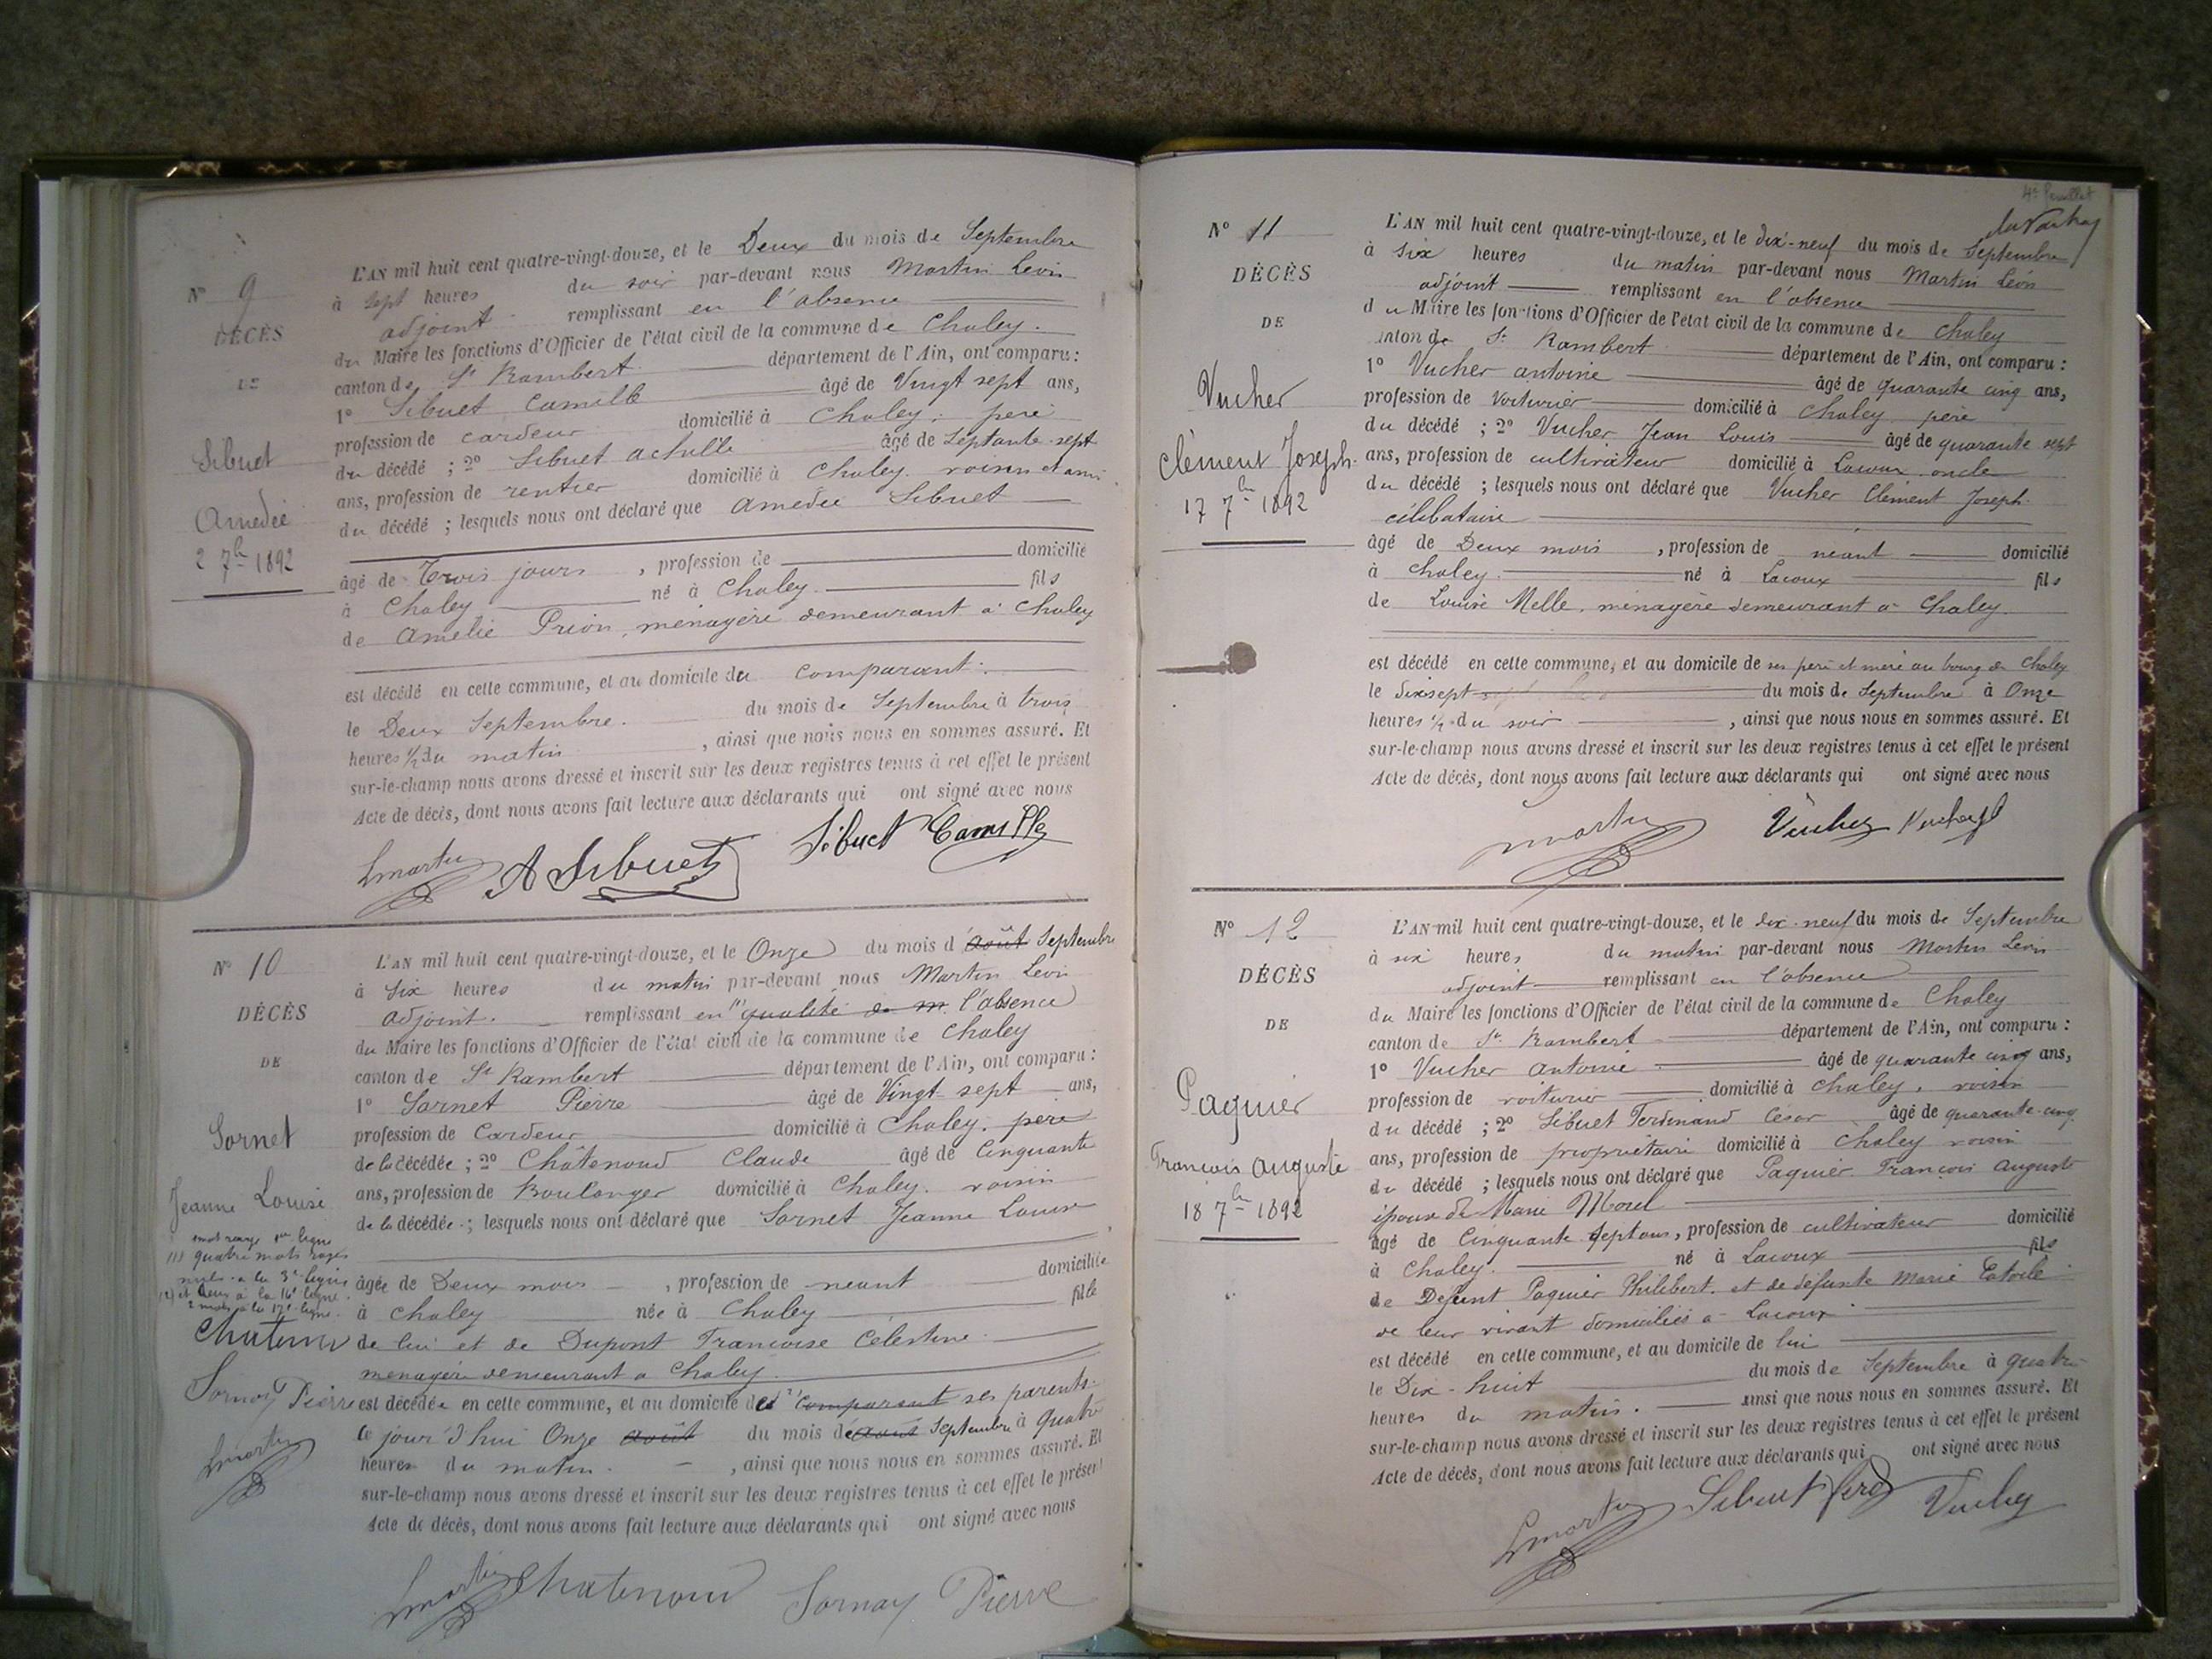 N° 9
DÉCÈS
DE
Sibuet
Amedée
2 7bre 1892
L'AN mil huit cent quatre-vingt-douze, et le Deux du mois de Septembre
à Sept heures du soir par-devant nous Martin Léon
adjoint remplissant en l'absence
du Maire les fonctions d'Officier de l'état civil de la commune de Chaley.
canton de St Rambert département de l'Ain, ont comparu :
1° Sibuet Camille âgé de Vingt sept ans,
profession de cardeur domicilié à Chaley ; père
du décédé ; 2° Sibuet achille âgé de Septante-sept
ans, profession de rentier domicilié à Chaley. voisin et ami
du décédé ; lesquels nous ont déclaré que Amedée Sibuet
âgé de Trois jours , profession de domicilié
à Chaley né à Chaley. fils
de Amelie Prion, ménagère demeurant à Chaley
est décédé en cette commune, et au domicile du comparant.
le Deux Septembre. du mois de Septembre à trois
heures 1/2 du matin , ainsi que nous nous en sommes assuré. Et
sur-le-champ nous avons dressé et inscrit sur les deux registres tenus à cet effet le présent
Acte de décès, dont nous avons fait lecture aux déclarants qui ont signé avec nous
Lmartin A Sibuet Sibuet Camille
N° 10
DÉCÈS
DE
Sornet
Jeanne Louise
quatre mots rayés
nuls à la 3e ligne
et deux à la 16e ligne
2 mots à la 17e ligne.
Chatenoud
Sornay Pierre
Lmartin
L'AN mil huit cent quatre-vingt-douze, et le Onze du mois d'août Septembre
à Six heures du matin par-devant nous Martin Léon
adjoint. remplissant en (1) qualité de m. l'absence
du Maire les fonctions d'Officier de l'état civil de la commune de Chaley
canton de St Rambert département de l'Ain, ont comparu :
1° Sornet Pierre âgé de Vingt sept ans,
profession de Cardeur domicilié à Chaley. père
de la décédée ; 2° Châtenoud Claude âgé de Cinquante
ans, profession de Boulanger domicilié à Chaley. voisin
de la décédée ; lesquels nous ont déclaré que Sornet Jeanne Louise
âgée de Deux mois , profession de néant domiciliée
à Chaley née à Chaley fille
de lui et de Dupont Françoise Célestine
menagère demeurant a Chaley.
est décédée en cette commune, et au domicile des (2) comparant ses parents.
le jour d'hui Onze août du mois de août Septembre à Quatre
heures du matin. , ainsi que nous nous en sommes assuré. Et
sur-le-champ nous avons dressé et inscrit sur les deux registres tenus à cet effet le présent
Acte de décès, dont nous avons fait lecture aux déclarants qui ont signé avec nous
Lmartin Chatenoud Sornay Pierre
4e feuillet
N° 11
DÉCÈS
DE
Vucher
Clément Joseph.
17 7bre 1892
L'AN mil huit cent quatre-vingt-douze, et le dix-neuf du mois de Septembre
à Six heures du matin par-devant nous Martin Léon
adjoint remplissant en l'absence
du Maire les fonctions d'Officier de l'état civil de la commune de Chaley
canton de St Rambert département de l'Ain, ont comparu :
1° Vucher antoine âgé de quarante cinq ans,
profession de Voiturier domicilié à Chaley père
du décédé ; 2° Vucher Jean Louis âgé de quarante sept
ans, profession de cultivateur domicilié à Lacoux oncle
du décédé ; lesquels nous ont déclaré que Vucher Clément Joseph.
célibataire
âgé de Deux mois , profession de néant domicilié
à Chaley. né à Lacoux fils
de Louise Melle, ménagère demeurant à Chaley.
est décédé en cette commune, et au domicile de ses père et mère au bourg de Chaley
le dix sept du mois de Septembre à Onze
heures 1/2 du soir , ainsi que nous nous en sommes assuré. Et
sur-le-champ nous avons dressé et inscrit sur les deux registres tenus à cet effet le présent
Acte de décès, dont nous avons fait lecture aux déclarants qui ont signé avec nous
martin Vucher Vucher
N° 12
DÉCÈS
DE
Paquier
François Auguste
18 7bre 1892
L'AN mil huit cent quatre-vingt-douze, et le dix-neuf du mois de Septembre
à six heures du matin par-devant nous Martin Léon
adjoint remplissant en l'absence
du Maire les fonctions d'Officier de l'état civil de la commune de Chaley
canton de St Rambert département de l'Ain, ont comparu :
1° Vucher Antoine âgé de quarante cinq ans,
profession de voiturier domicilié à Chaley, voisin
du décédé ; 2° Sibuet Ferdinand César âgé de quarante-cinq
ans, profession de propriétaire domicilié à Chaley voisin
du décédé ; lesquels nous ont déclaré que Paquier François Auguste
époux de Marie Morel
âgé de Cinquante Sept ans, profession de cultivateur domicilié
à Chaley. né à Lacoux fils
de Defunt Paquier Philibert. et de défunte Marie
de leur vivant domiciliés à Lacoux
est décédé en cette commune, et au domicile de lui
le Dix-huit du mois de Septembre à quatre
heures du matin. ainsi que nous nous en sommes assuré. Et
sur-le-champ nous avons dressé et inscrit sur les deux registres tenus à cet effet le présent
Acte de décès, dont nous avons fait lecture aux déclarants qui ont signé avec nous
Lmartin Sibuet ferd Vucher